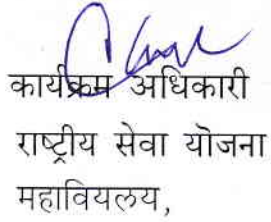 कार्यक्रम अधिकारी
राष्ट्रीय सेवा योजना
महावियलय,